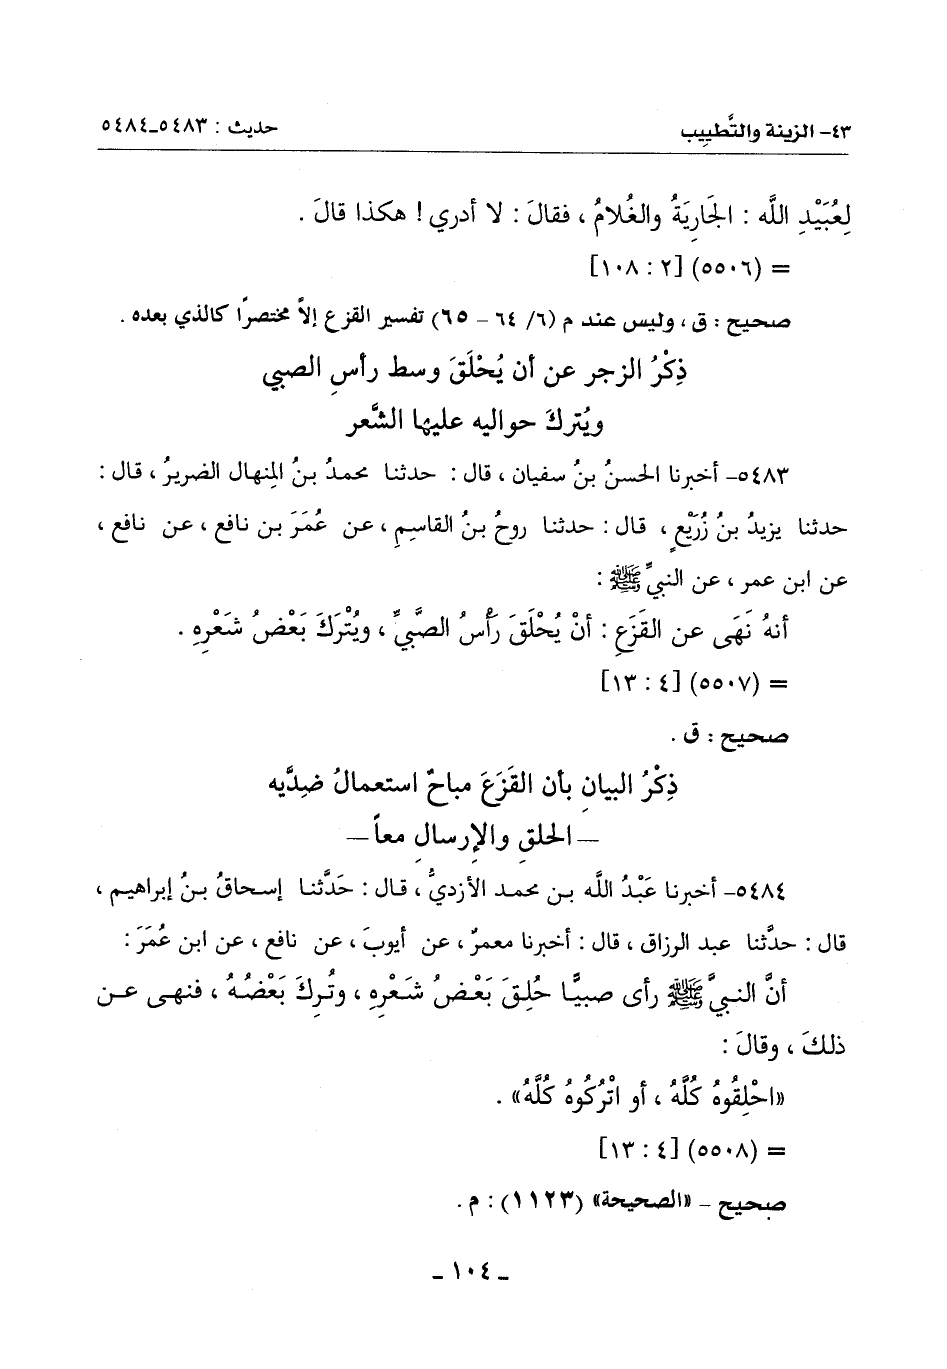 ٤٣- الزينة والتَّطبِيب حديث : ٥٤٨٣ـ٥٤٨٤
لِعُبَيْدِ اللَّه : الجَارِيَةُ والغُلامُ ، فقالَ : لا أدري ! هكذا قالَ .
= (٥٥٠٦) [٢ : ١٠٨]
صحيح : ق ، وليس عند م (٦/ ٦٤ – ٦٥) تفسير القزع إلاَّ مختصرًا كالذي بعده .
ذِكْرُ الزجر عن أن يُحْلَقَ وسط رأسِ الصبي
ويُتركَ حواليه عليها الشَّعر
٥٤٨٣- أخبرنا الحسنُ بنُ سفيان ، قال : حدثنا محمدُ بنُ المِنهال الضريرُ ، قال :
حدثنا يزيدُ بنُ زُرَيْعٍ ، قال : حدثنا روحُ بنُ القاسِمِ ، عن عُمَرَ بن نافع ، عن نافع ،
عن ابن عمر ، عن النبيِّ ﷺ :
أنهُ نَهَى عن القَزَعِ : أنْ يُحْلَقَ رَأْسُ الصَّبيِّ ، ويُتْرَكَ بَعْضُ شَعْرِهِ .
= (٥٥٠٧) [٤ : ١٣]
صحيح : ق .
ذِكْرُ البيانِ بأن القَزَعَ مباحٌ استعمالُ ضِدَّيه
– الحلقِ والإرسالِ معاً –
٥٤٨٤- أخبرنا عَبْدُ اللَّه بن محمد الأزديُّ ، قال : حَدَّثنا إسحاقُ بنُ إبراهيم ،
قال : حدَّثنا عبد الرزاق ، قال : أخبرنا معمرٌ ، عن أيوبَ ، عن نافع ، عن ابن عُمَرَ :
أنَّ النبيَّ ﷺ رأى صبيًّا حُلِقَ بَعْضُ شَعْرِهِ ، وتُرِكَ بَعْضُهُ ، فنهى عن
ذلكَ ، وقالَ :
«احْلِقُوهُ كُلَّهُ ، أو اتْرُكُوهُ كُلَّهُ» .
= (٥٥٠٨) [٤ : ١٣]
صحيح – «الصحيحة» (١١٢٣) : م .
- ١٠٤ -